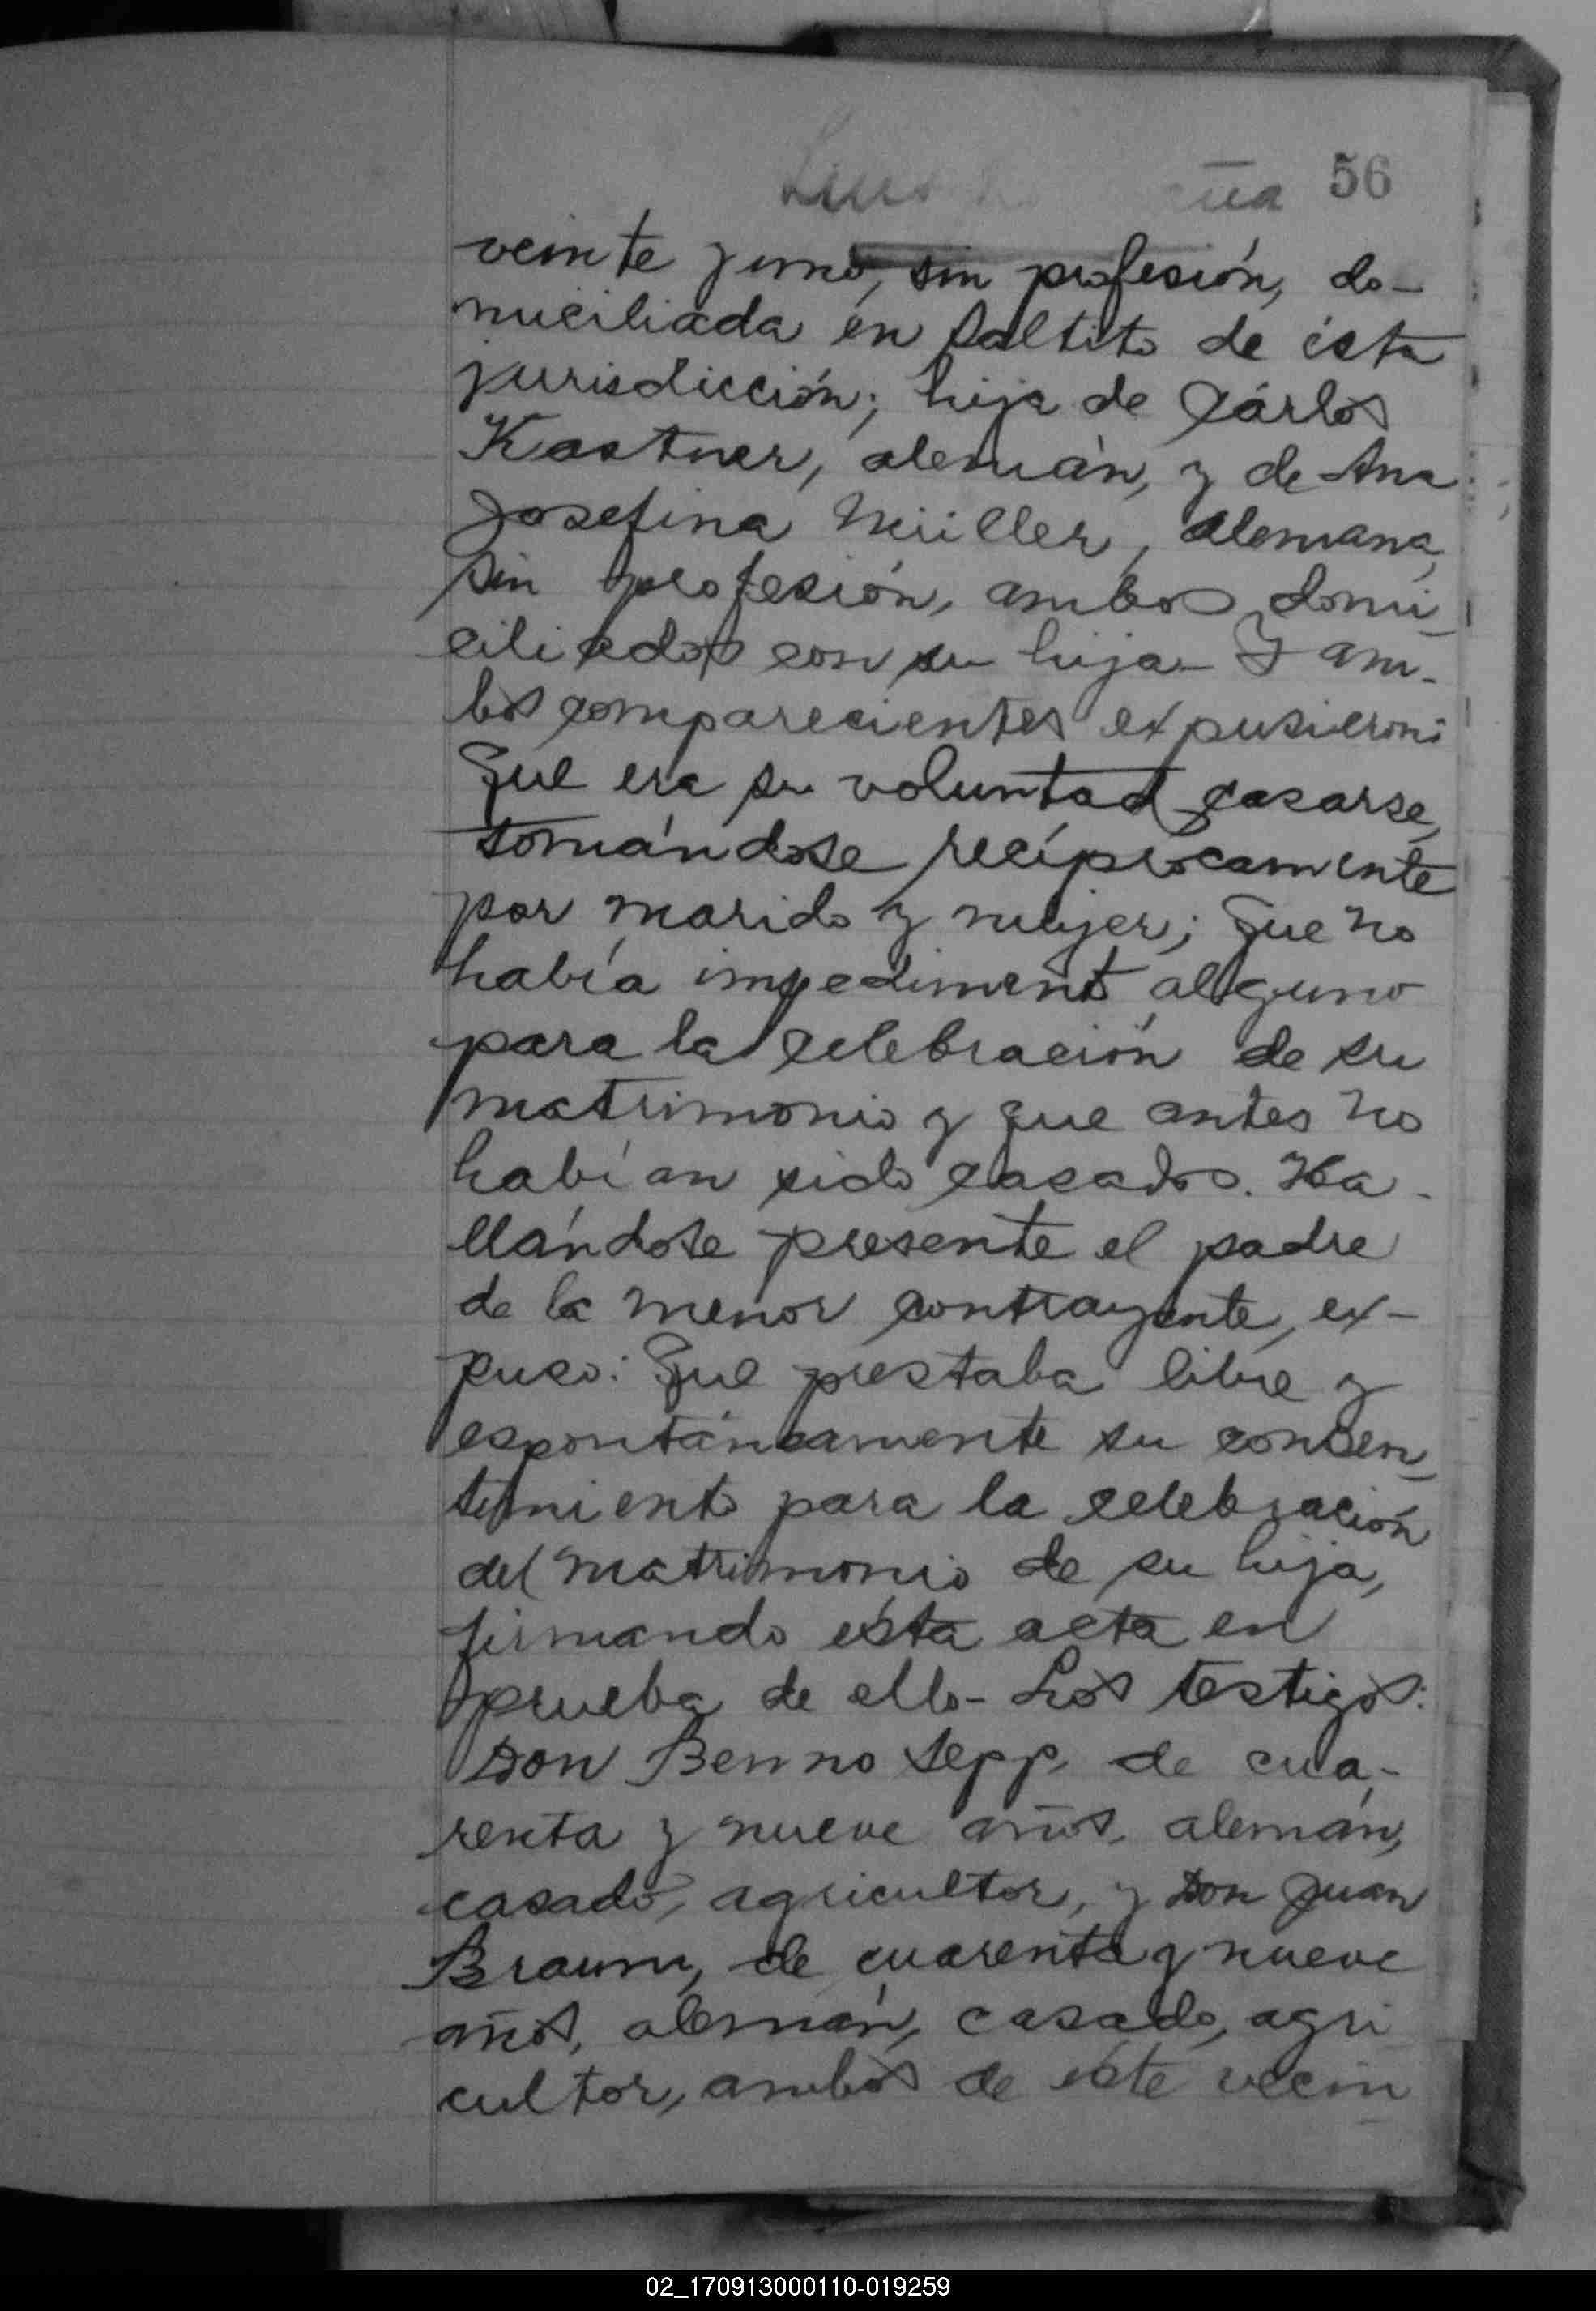 56
veinte y uno, sin profesión, do-
miciliada en Saltito de ésta
jurisdicción; hija de Cárlos
Kastner, alemán, y de Ana
Josefina Müller, alemana,
sin profesión, ambos domi_
ciliados con su hija- Y am-
bos comparecientes expusieron:
Que era su voluntad casarse,
tomándose recíprocamente
por marido y mujer; que no
había impedimento alguno
para la celebración de su
matrimonio y que antes no
habían sido casados. Ha-
llándose presente el padre
de la menor contrayente, ex-
puso: Que prestaba libre y
espontáneamente su consen_
timiento para la celebración
del matrimonio de su hija,
firmando ésta acta en
prueba de ello- Los testigos:
Don Benno Sepp, de cua-
renta y nueve años, alemán,
casado, agricultor, y Don Juan
Braum, de cuarenta y nueve
años, alemán, casado, agri
cultor, ambos de éste vecin_
02_170913000110-019259